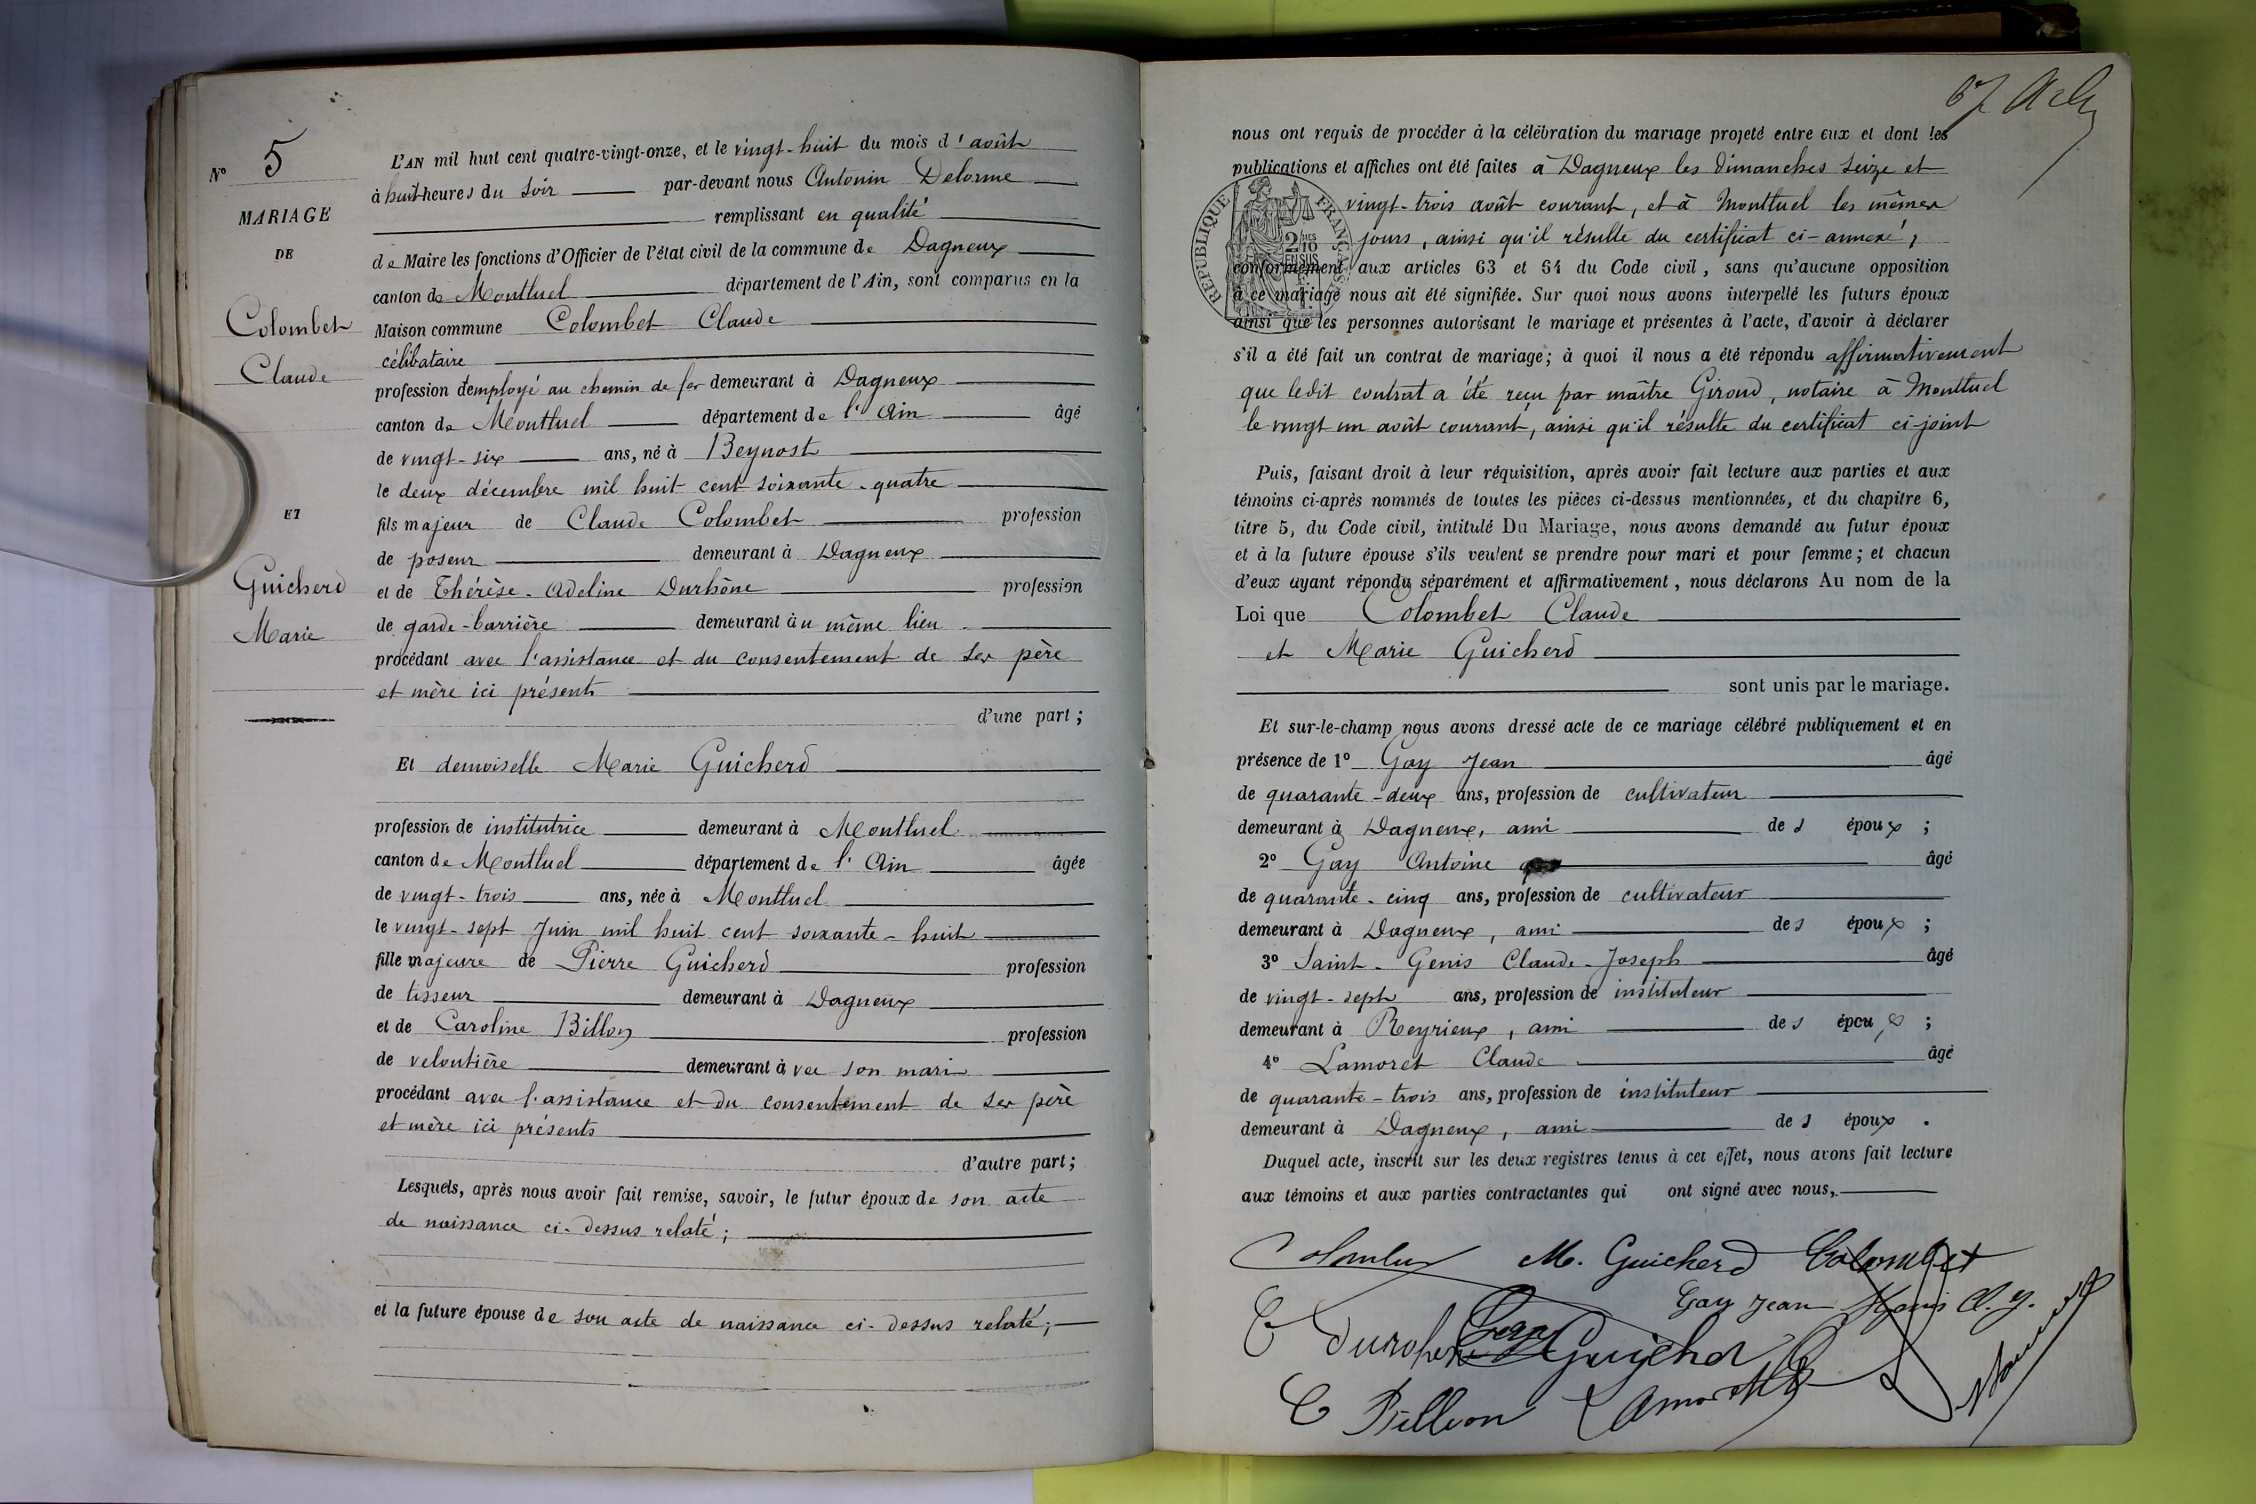 N° 5
MARIAGE
DE
Colombet
Claude
ET
Guicherd
Marie
L'AN mil huit cent quatre-vingt-onze, et le vingt-huit du mois d'août
à huit heures du soir par-devant nous Antonin Delorme
remplissant en qualité
de Maire les fonctions d'Officier de l'état civil de la commune de Dagneux
canton de Montluel département de l'Ain, sont comparus en la
Maison commune Colombet Claude
célibataire
profession d'employé au chemin de fer demeurant à Dagneux
canton de Montluel département de l'Ain âgé
de vingt-six ans, né à Beynost
le deux décembre mil huit cent soixante-quatre
fils majeur de Claude Colombet profession
de poseur demeurant à Dagneux
et de Thérèse-Adeline Durhône profession
de garde-barrière demeurant au même lieu
procédant avec l'assistance et du consentement de ses père
et mère ici présents
d'une part ;
Et demoiselle Marie Guicherd
profession de institutrice demeurant à Montluel
canton de Montluel département de l'Ain âgée
de vingt-trois ans, née à Montluel
le vingt-sept Juin mil huit cent soixante-huit
fille majeure de Pierre Guicherd profession
de tisseur demeurant à Dagneux
et de Caroline Billon profession
de veloutière demeurant avec son mari
procédant avec l'assistance et du consentement de ses père
et mère ici présents
d'autre part ;
Lesquels, après nous avoir fait remise, savoir, le futur époux de son acte
de naissance ci-dessus relaté ;
et la future épouse de son acte de naissance ci-dessus relaté ;
nous ont requis de procéder à la célébration du mariage projeté entre eux et dont les
publications et affiches ont été faites à Dagneux les dimanches seize et
vingt-trois août courant, et à Montluel les mêmes
jours, ainsi qu'il résulte du certificat ci-annexé,
RÉPUBLIQUE FRANÇAISE
conformément aux articles 63 et 64 du Code civil, sans qu'aucune opposition
à ce mariage nous ait été signifiée. Sur quoi nous avons interpellé les futurs époux
ainsi que les personnes autorisant le mariage et présentes à l'acte, d'avoir à déclarer
s'il a été fait un contrat de mariage ; à quoi il nous a été répondu affirmativement
que ledit contrat a été reçu par maître Giroud, notaire à Montluel
le vingt un août courant, ainsi qu'il résulte du certificat ci-joint
Puis, faisant droit à leur réquisition, après avoir fait lecture aux parties et aux
témoins ci-après nommés de toutes les pièces ci-dessus mentionnées, et du chapitre 6,
titre 5, du Code civil, intitulé Du Mariage, nous avons demandé au futur époux
et à la future épouse s'ils veulent se prendre pour mari et pour femme ; et chacun
d'eux ayant répondu séparément et affirmativement, nous déclarons Au nom de la
Loi que Colombet Claude
et Marie Guicherd
sont unis par le mariage.
Et sur-le-champ nous avons dressé acte de ce mariage célébré publiquement et en
présence de 1° Gay Jean âgé
de quarante-deux ans, profession de cultivateur
demeurant à Dagneux, ami des époux ;
2° Gay Antoine âgé
de quarante-cinq ans, profession de cultivateur
demeurant à Dagneux, ami des époux ;
3° Saint-Genis Claude-Joseph âgé
de vingt-sept ans, profession de instituteur
demeurant à Reyrieux, ami des époux ;
4° Lamoret Claude âgé
de quarante-trois ans, profession de instituteur
demeurant à Dagneux, ami des époux .
Duquel acte, inscrit sur les deux registres tenus à cet effet, nous avons fait lecture
aux témoins et aux parties contractantes qui ont signé avec nous,
Colombet M. Guicherd Colombet
Gay Jean
Guicherd
C Billion